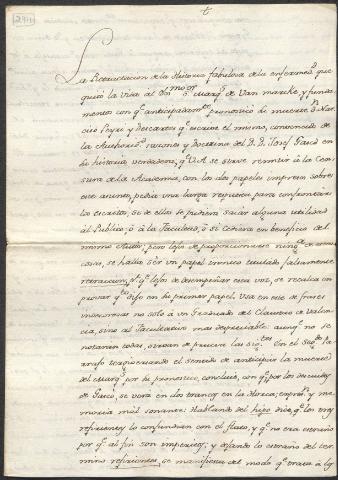 t
La Retractacion de la Historia fabulosa de la enfermed.d que
quitó la vida al Exmo. S.or Marq.s de Vanmarcke y funda
mentos con q.e anticipadam.te pronosticó su muerte D.n Nar
ciso Peyri y Descartes q.e escrive el mismo, convencido de
la Authorid.d razones y Doctrina del D.r D. Josef Gascó en
su historia verdadera, q.e V.A. se sirve remitir à la Cen
sura de la Academia, con los dos papeles impresos sobre
este asunto, pedia una larga respuesta para confrontar
los escritos, si de ellos se pudiera sacar alguna utilidad
al Publico, ò à la Facultad, ò se cediera en beneficio del
mismo Autor, pero lejos de proporcionarse ning.a de estas
cosas, se halla ser un papel ironico titulado falsamente
retraccion, p.r q.e lejos de desempeñar esta voz, se recalca en
provar q.to dijo en su primer papel. Usa en este de frases
indecorosas no solo à un Graduado del Claustro de Valen
cia, sino al Facultativo mas despreciable: aunq.e no se
notaran todas, sirvan de prueva las sig.tes En el Seg.do pa
rrafo tergiversando el sentido de anticipar la muerte
del Marq.s por su pronostico, concluie, con q.e por los descuidos
de Gascó, se verá en dos trances en la Horca; expres.n y me
moria mal sonante: Hablando del hipo dice, q.e los muy
refirientes lo confunden con el flato, y q.e no era estraño
por q.e al fin son imperitos; y dejando lo estraño del ter
mino refirientes, se manifiesta del modo q.e trata à los